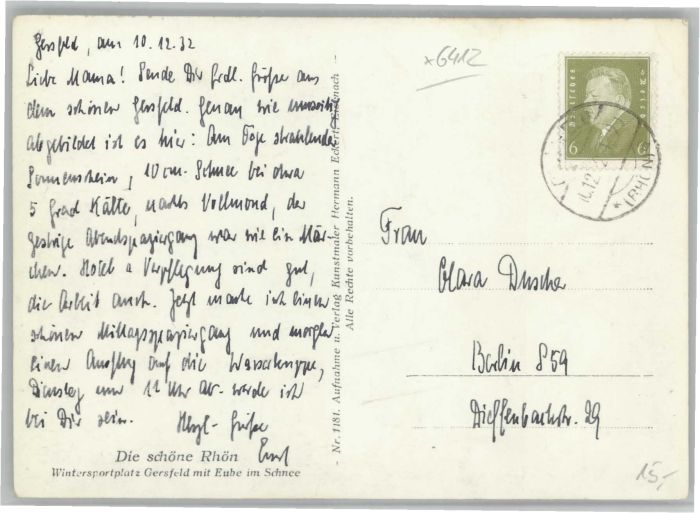 Gersfeld, am 10.12.32
Liebe Mama! Sende Dir hrdl. Grüße aus
dem schönen Gersfeld. Genau wie umseitig
abgebildet ist es hier: Am Tage strahlender
Sonnenschein, 10 cm Schnee bei etwa
5 Grad Kälte, nachts Vollmond, der
gestrige Abendspaziergang war wie ein Mär-
chen. Hotel u Verpflegung sind gut,
die Arbeit auch. Jetzt mache ich einen
schönen Mittagsspaziergang und morgen
einen Ausflug auf die Wasserkuppe,
Dienstag um 11 Uhr werde ich
bei Dir sein. Herzl. Grüße
Die schöne Rhön
Wintersportplatz Gersfeld mit Eube im Schnee
Nr. 1181. Aufnahme u. Verlag Kunstmaler Hermann Eckert, Eisenach
Alle Rechte vorbehalten.
x6412
6 6
(RHÖN)
Frau
Clara Duscher
Berlin S 59
Dieffenbachstr. 29
15,-